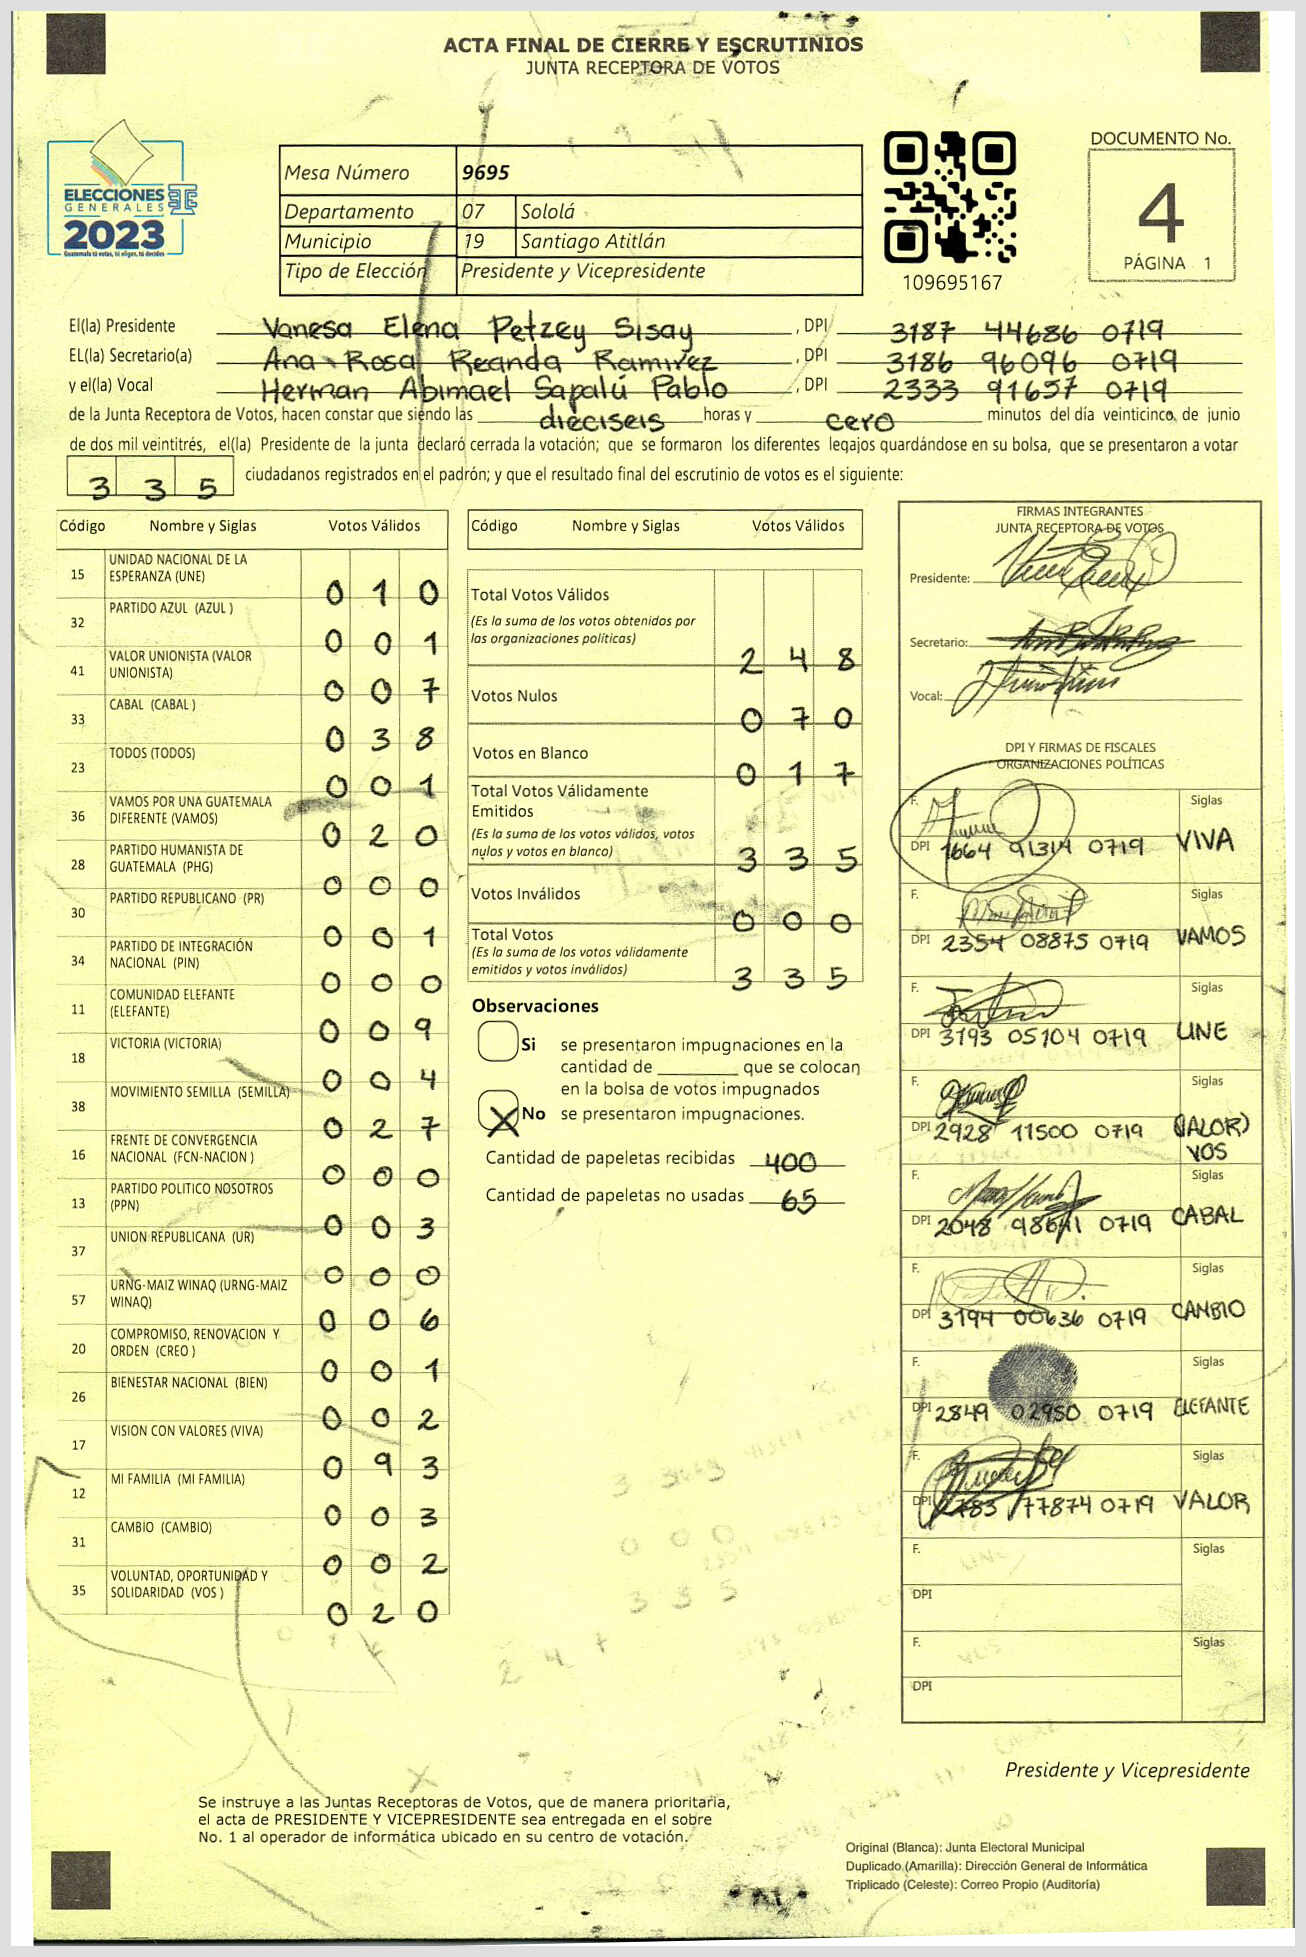 ACTA FINAL DE CIERRE Y ESCRUTINIOS
JUNTA RECEPTORA DE VOTOS
ELECCIONES
GENERALES
2023
Guatemala tú votas, tú eliges, tú decides
Mesa Número 9695
Departamento 07 Sololá
Municipio 19 Santiago Atitlán
Tipo de Elección Presidente y Vicepresidente
109695167
DOCUMENTO No.
4
PÁGINA 1
El(la) Presidente Vanesa Elena Petzey Sisay , DPI 3187 44686 0719
EL(la) Secretario(a) Ana Rosa Reanda Ramirez , DPI 3186 96096 0719
y el(la) Vocal Herman Abimael Sapalú Pablo , DPI 2333 91657 0719
de la Junta Receptora de Votos, hacen constar que siendo las dieciseis horas y cero minutos del día veinticinco, de junio
de dos mil veintitrés, el(la) Presidente de la junta declaró cerrada la votación; que se formaron los diferentes legajos quardándose en su bolsa, que se presentaron a votar
3 3 5 ciudadanos registrados en el padrón; y que el resultado final del escrutinio de votos es el siguiente:
Código Nombre y Siglas Votos Válidos
15 UNIDAD NACIONAL DE LA
ESPERANZA (UNE) 0 1 0
32 PARTIDO AZUL (AZUL ) 0 0 1
41 VALOR UNIONISTA (VALOR
UNIONISTA) 0 0 7
33 CABAL (CABAL ) 0 3 8
23 TODOS (TODOS) 0 0 1
36 VAMOS POR UNA GUATEMALA
DIFERENTE (VAMOS) 0 2 0
28 PARTIDO HUMANISTA DE
GUATEMALA (PHG) 0 0 0
30 PARTIDO REPUBLICANO (PR) 0 0 1
34 PARTIDO DE INTEGRACIÓN
NACIONAL (PIN) 0 0 0
11 COMUNIDAD ELEFANTE
(ELEFANTE) 0 0 9
18 VICTORIA (VICTORIA) 0 0 4
38 MOVIMIENTO SEMILLA (SEMILLA) 0 2 7
16 FRENTE DE CONVERGENCIA
NACIONAL (FCN-NACION ) 0 0 0
13 PARTIDO POLITICO NOSOTROS
(PPN) 0 0 3
37 UNION REPUBLICANA (UR) 0 0 0
57 URNG-MAIZ WINAQ (URNG-MAIZ
WINAQ) 0 0 6
20 COMPROMISO, RENOVACION Y
ORDEN (CREO ) 0 0 1
26 BIENESTAR NACIONAL (BIEN) 0 0 2
17 VISION CON VALORES (VIVA) 0 9 3
12 MI FAMILIA (MI FAMILIA) 0 0 3
31 CAMBIO (CAMBIO) 0 0 2
35 VOLUNTAD, OPORTUNIDAD Y
SOLIDARIDAD (VOS ) 0 2 0
Código Nombre y Siglas Votos Válidos
Total Votos Válidos
(Es la suma de los votos obtenidos por
las organizaciones políticas) 2 4 8
Votos Nulos 0 7 0
Votos en Blanco 0 1 7
Total Votos Válidamente
Emitidos
(Es la suma de los votos válidos, votos
nulos y votos en blanco) 3 3 5
Votos Inválidos 0 0 0
Total Votos
(Es la suma de los votos válidamente
emitidos y votos inválidos) 3 3 5
Observaciones
Si se presentaron impugnaciones en la
cantidad de ________ que se colocan
en la bolsa de votos impugnados
X No se presentaron impugnaciones.
Cantidad de papeletas recibidas 400
Cantidad de papeletas no usadas 65
FIRMAS INTEGRANTES
JUNTA RECEPTORA DE VOTOS
Presidente:
Secretario:
Vocal:
DPI Y FIRMAS DE FISCALES
ORGANIZACIONES POLÍTICAS
F. Siglas
DPI 1664 91314 0719 VIVA
F. Siglas
DPI 2354 08875 0719 VAMOS
F. Siglas
DPI 3193 05104 0719 UNE
F. Siglas
DPI 2928 11500 0719 (VALOR)
VOS
F. Siglas
DPI 2048 0719 CABAL
F. Siglas
DPI 3194 00636 0719 CAMBIO
F. Siglas
DPI 2849 02950 0719 ELEFANTE
F. Siglas
DPI 77874 0719 VALOR
F. Siglas
DPI
F. Siglas
DPI
Presidente y Vicepresidente
Se instruye a las Juntas Receptoras de Votos, que de manera prioritaria,
el acta de PRESIDENTE Y VICEPRESIDENTE sea entregada en el sobre
No. 1 al operador de informática ubicado en su centro de votación.
Original (Blanca): Junta Electoral Municipal
Duplicado (Amarilla): Dirección General de Informática
Triplicado (Celeste): Correo Propio (Auditoría)